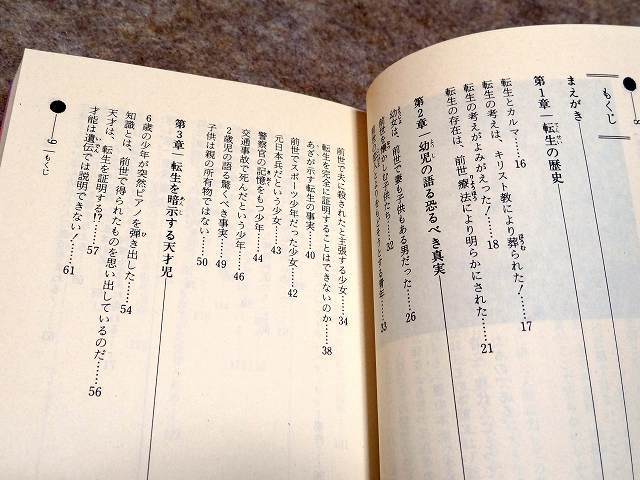 8
もくじ
まえがき
第1章｜転生の歴史
転生とカルマ……16
転生の考えは、キリスト教により葬られた!……17
転生の考えがよみがえった!……18
転生の存在は、前世療法により明らかにされた……21
第2章｜幼児の語る恐るべき真実
幼児は、前世で妻も子供もある男だった……26
前世を懐かしむ子供たち……32
青年……33
前世で夫に殺されたと主張する少女……34
転生を完全に証明することはできないのか……38
あざが示す転生の事実……40
前世でスポーツ少年だった少女……42
元日本兵だという少女……43
警察官の記憶をもつ少年……44
交通事故で死んだという少年……46
2歳児の語る驚くべき事実……49
子供は親の所有物ではない……50
第3章｜転生を暗示する天才児
6歳の少年が突然ピアノを弾き出した……54
知識とは、前世で得られたものを思い出しているのだ……56
天才は、転生を証明する!?……57
才能は遺伝では説明できない!……61
9｜もくじ